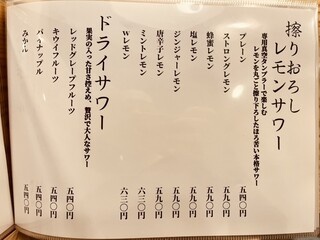 擦りおろし
レモンサワー
専用真空タンブラーで楽しむ
レモンを丸ごと擦り下ろしたほろ苦い本格サワー
プレーン 五四〇円
ストロングレモン 五九〇円
蜂蜜レモン 五九〇円
塩レモン 五九〇円
ジンジャーレモン 五九〇円
唐辛子レモン 五九〇円
ミントレモン 六三〇円
Wレモン 六三〇円
ドライサワー
果実の入った甘さ控えめ、贅沢で大人なサワー
レッドグレープフルーツ 五四〇円
キウイフルーツ 五四〇円
パイナップル 五四〇円
みかん 五四〇円